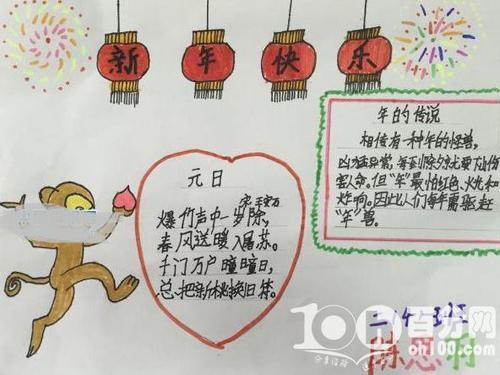 新年快乐
年的传说
相传有一种年的怪兽,
凶猛异常,每到除夕就要下山伤
害人命。但"年"最怕红色、火光和
炸响。因此人们每年需驱赶
"年"兽。
元日
爆竹声中一岁除,
春风送暖入屠苏。
千门万户曈曈日,
总把新桃换旧符。
班
百分网
oh100.com